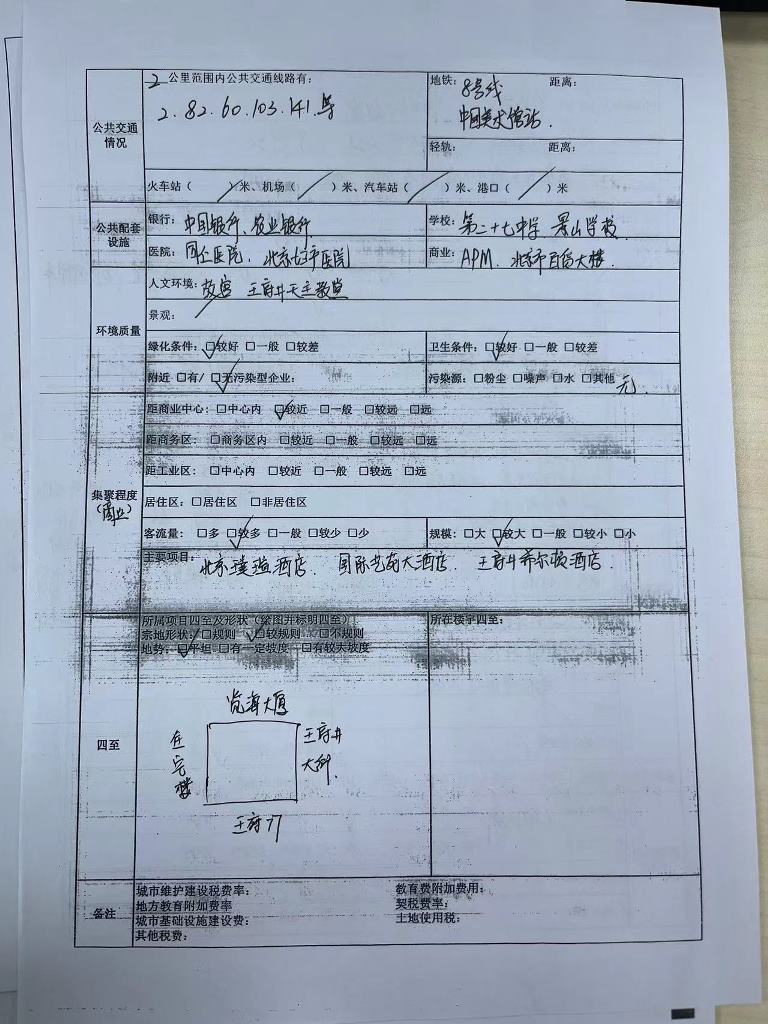 2 公里范围内公共交通线路有:
2. 82. 60. 103. 141. 等
地铁: 8号线 距离:
中国美术馆站.
公共交通情况
轻轨: 距离:
火车站( / )米、机场( / )米、汽车站( / )米、港口( / )米
公共配套设施
银行: 中国银行、农业银行
学校: 第二十七中学 景山学校
医院: 医院. 北京 医院
商业: APM. 北京市百货大楼
环境质量
人文环境: 故宫 王府井天主教堂
景观: /
绿化条件: ☑较好 □一般 □较差
卫生条件: ☑较好 □一般 □较差
附近 □有/ ☑无污染型企业:
污染源: □粉尘 □噪声 □水 □其他 无.
集聚程度
(商业)
距商业中心: □中心内 ☑较近 □一般 □较远 □远
距商务区: □商务区内 □较近 □一般 □较远 □远
距工业区: □中心内 □较近 □一般 □较远 □远
居住区: □居住区 □非居住区
客流量: □多 ☑较多 □一般 □较少 □少
规模: □大 ☑较大 □一般 □较小 □小
主要项目: 北京璞瑄酒店. 国际艺苑大酒店. 王府井希尔顿酒店.
四至
所属项目四至及形状(绘图并标明四至)
所在楼宇四至:
宗地形状: □规则 ☑较规则 □不规则
地势: ☑平坦 □有一定坡度 □有较大坡度
览海大厦
住宅楼
王府井大街.
王府
备注
城市维护建设税费率: 教育费附加费用:
地方教育附加费率 契税费率:
城市基础设施建设费: 土地使用税:
其他税费: